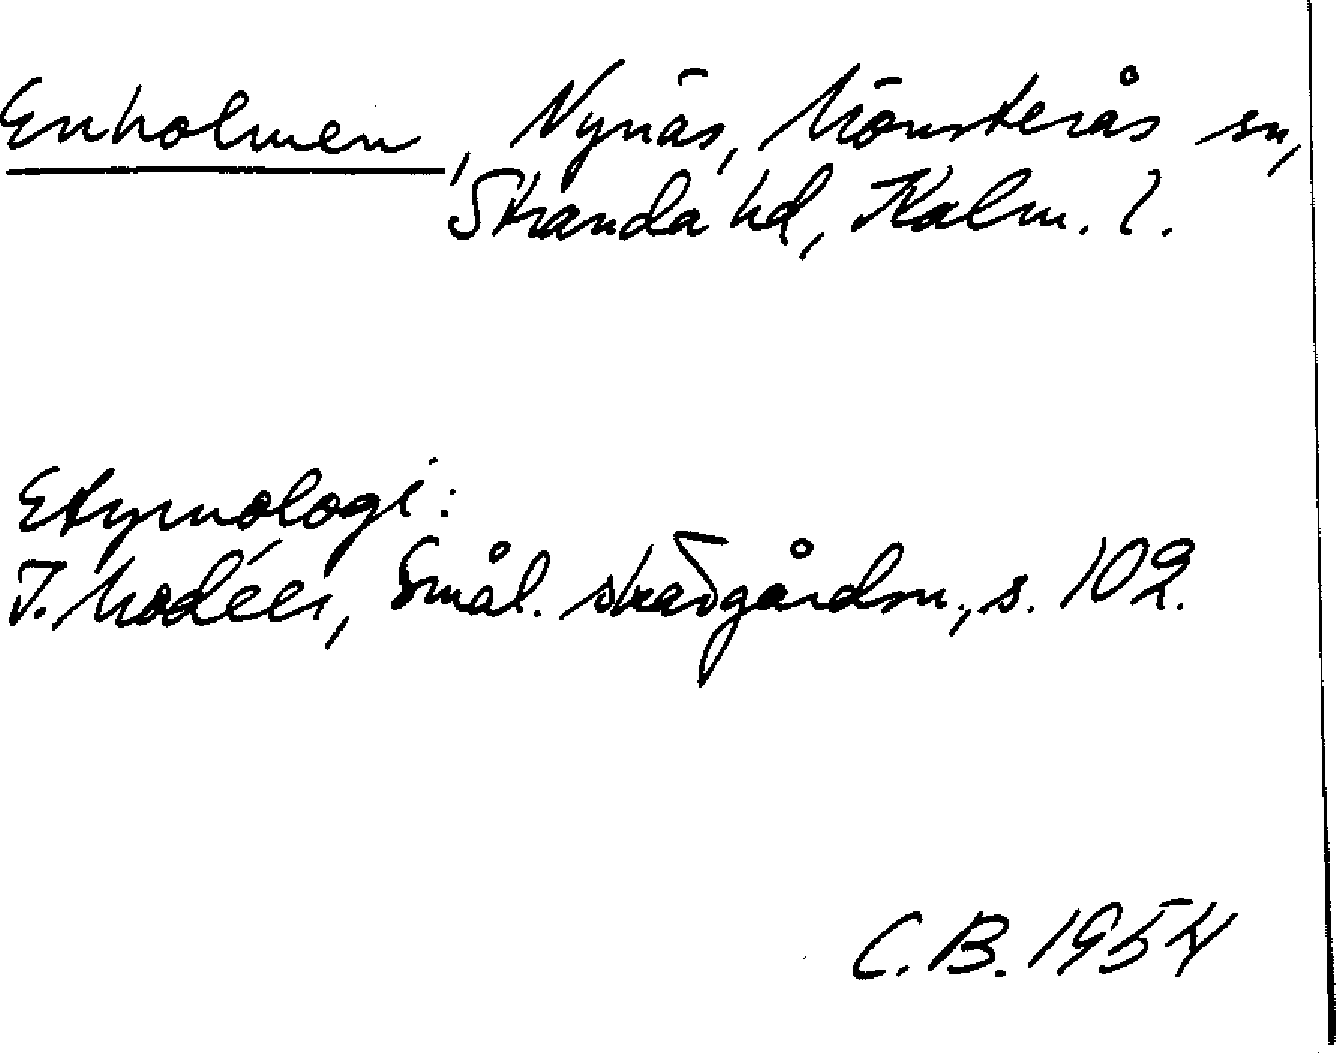 Enholmen, Nynäs, Mönsterås sn,
Stranda hd, Kalm. l.
Etymologi:
I. Modéer, Smål. skärgårdsn., s. 102.
C.B. 1954